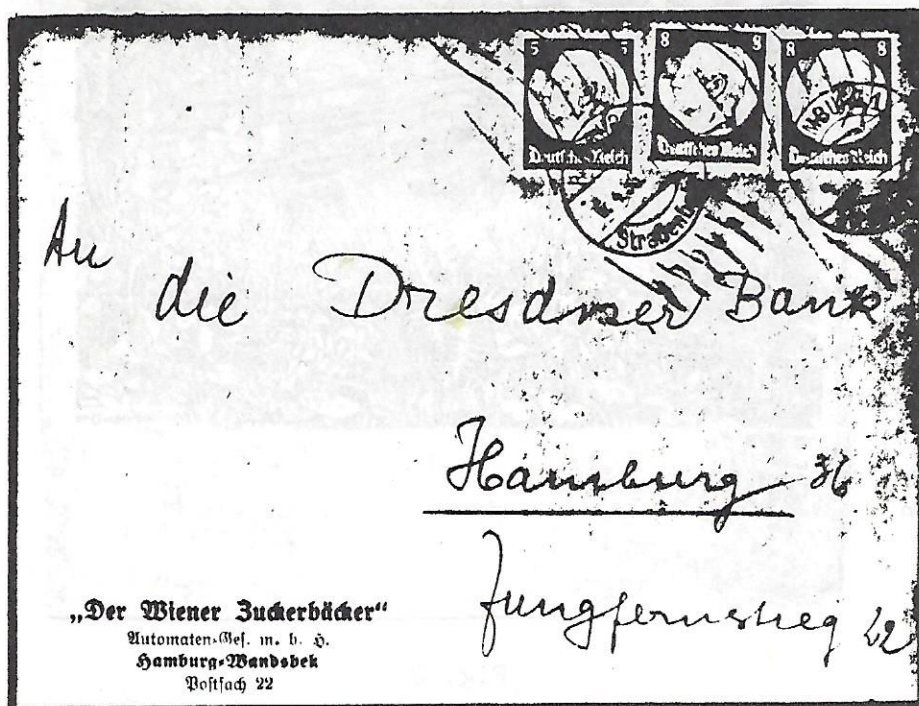 5 5
8 8
8 8
Deutsches Reich
Deutsches Reich
Deutsches Reich
Straßenb
An
die Dresdner Bank
Hamburg 36
Jungfernstieg 22
„Der Wiener Zuckerbäcker“
Automaten-Ges. m. b. H.
Hamburg-Wandsbek
Postfach 22